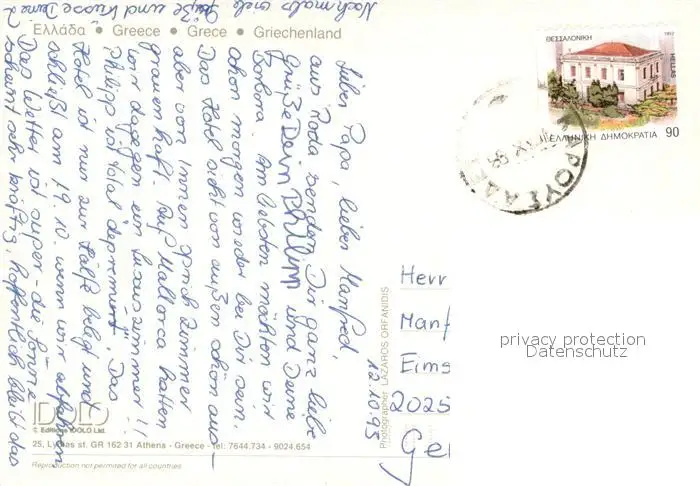 Ελλάδα • Greece • Grece • Griechenland
12.10.95
Lieber Papa, lieber Manfred,
aus Roda senden Dir ganz liebe
Grüße Dein Philipp und Deine
Barbara. Am liebsten möchten wir
schon morgen wieder bei Dir sein.
Das Hotel sieht von außen schön aus -
aber von Innen sprich Zimmer
grauenhaft. Auf Mallorca hatten
wir dagegen ein Luxuszimmer!!
Philipp ist total deprimiert. Das
Hotel ist nun zur Hälfte belegt und
schließt am 19.10. wenn wir abfahren
Das Wetter ist super - die Sonne
scheint sehr kräftig, hoffentlich bleibt das
Nochmals viele
Grüße und Küsse Deine 2
ΘΕΣΣΑΛΟΝΙΚΗ
1992
HELLAS
ΕΛΛΗΝΙΚΗ ΔΗΜΟΚΡΑΤΙΑ 90
Herr
Manf
Eims
2025
Ge
privacy protection
Datenschutz
Photographer LAZAROS ORFANIDIS
IDOLO
© Editions IDOLO Ltd.
25, Lykias st. GR 162 31 Athens - Greece - tel: 7644.734 - 9024.654
Reproduction not permited for all countries